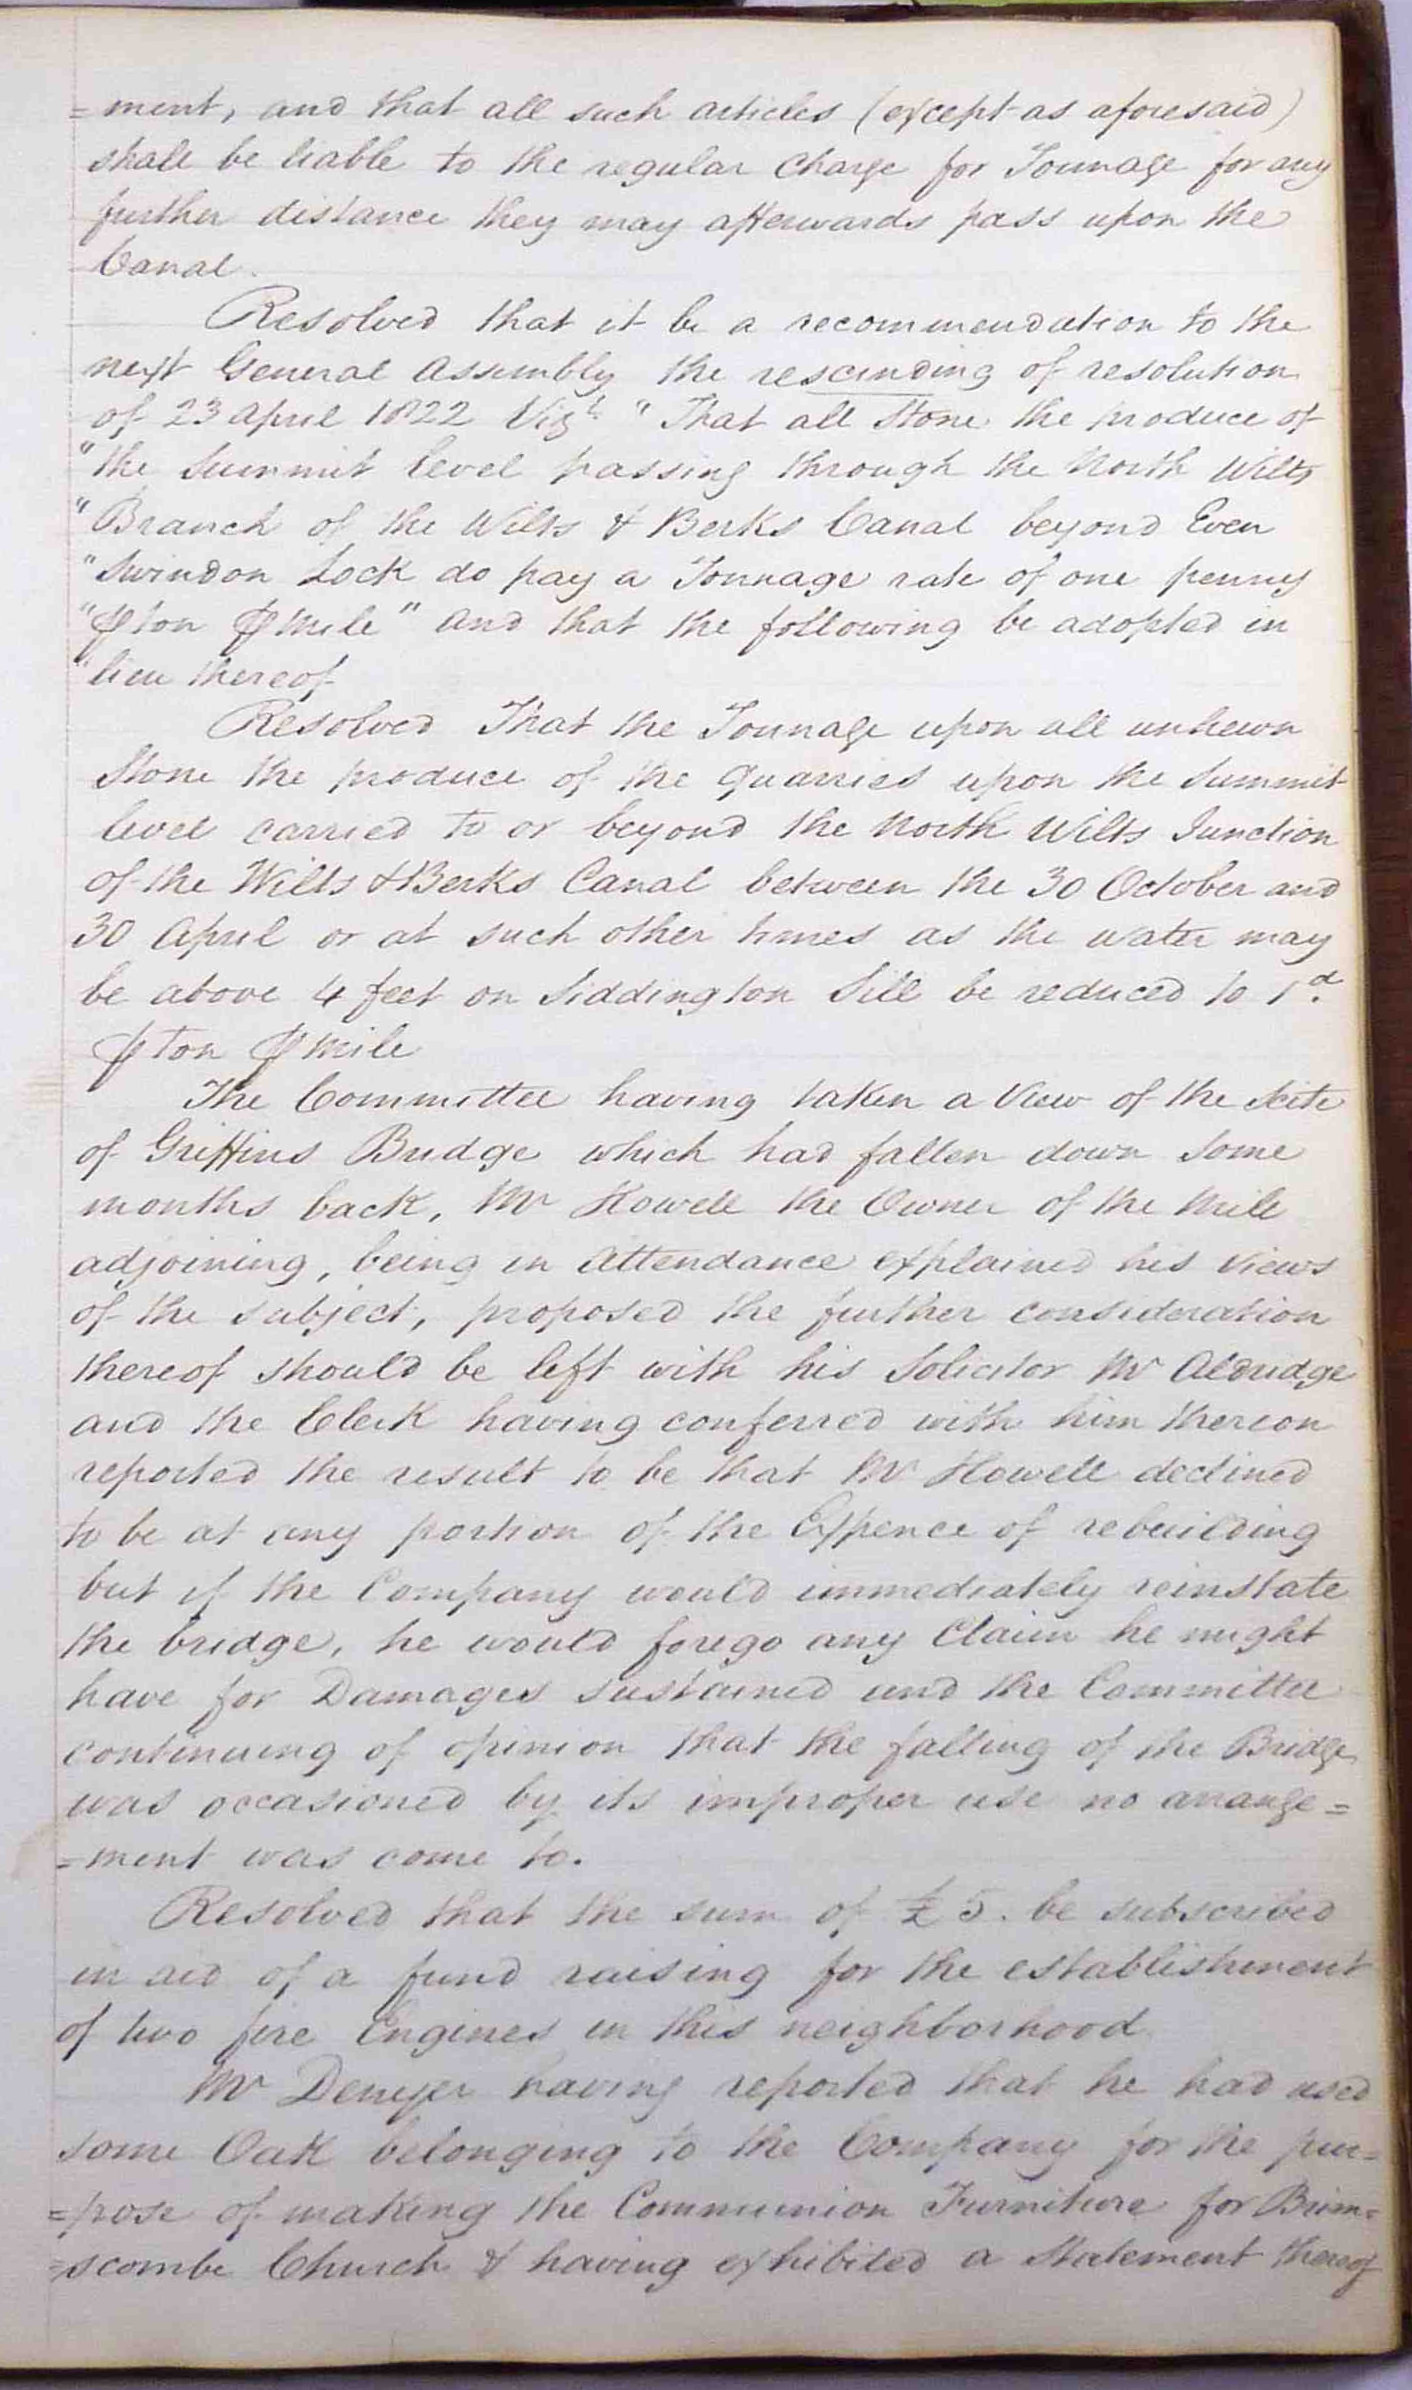 =ment, and that all such articles (except as aforesaid)
shall be liable to the regular Charge for Tonnage for any
further distance they may afterwards pass upon the
Canal.
Resolved that it be a recommendation to the
next General Assembly the rescinding of resolution
of 23 April 1822 Vizt. "That all Stone the produce of
"the Summit level passing through the North Wilts
"Branch of the Wilts & Berks Canal beyond Even
"Swindon Lock do pay a Tonnage rate of one penny
"⅌ ton ⅌ Mile" and that the following be adopted in
"lieu thereof
Resolved That the Tonnage upon all unhewn
Stone the produce of the Quarries upon the Summit
level carried to or beyond the North Wilts Junction
of the Wilts & Berks Canal between the 30 October and
30 April or at such other times as the water may
be above 4 feet on Siddington Sill be reduced to 1d.
⅌ Ton ⅌ Mile
The Committee having taken a View of the Scite
of Griffins Bridge which had fallen down some
months back, Mr Howell the Owner of the Mill
adjoining, being in Attendance explained his Views
of the subject, proposed the further consideration
thereof should be left with his Solicitor Mr Aldridge
and the Clerk having conferred with him thereon
reported the result to be that Mr Howell declined
to be at any portion of the Expence of rebuilding
but if the Company would immediately reinstate
the bridge, he would forego any Claim he might
have for Damages sustained and the Committee
continuing of opinion that the falling of the Bridge
was occasioned by its improper use no arrange=
=ment was come to.
Resolved that the sum of £5. be subscribed
in aid of a fund raising for the establishment
of two fire Engines in this neighborhood
Mr Denyer having reported that he had used
some Oak belonging to the Company for the pur=
=pose of making the Communion Furniture for Brim=
=scombe Church & having exhibited a Statement thereof